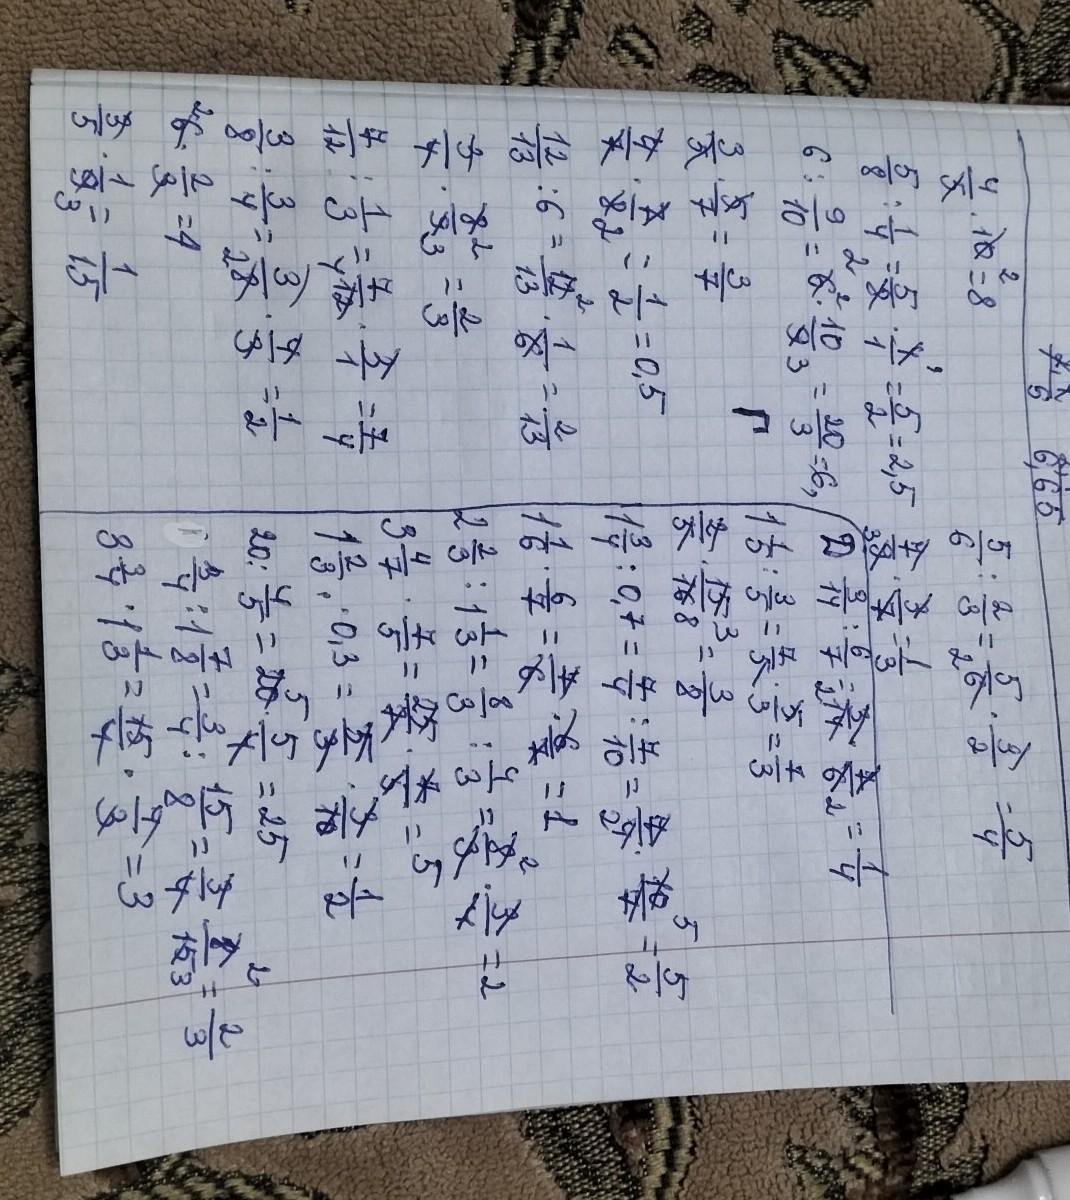 4/5 · 10 2 = 8
5/8 : 1/4 = 5/8 2 · 4/1 = 5/2 = 2,5
6 : 9/10 = 6 2 · 10/9 3 = 20/3 = 6,
3/5 · 5/7 = 3/7
4/7 · 7/8 2 = 1/2 = 0,5
12/13 : 6 = 12 2/13 · 1/6 = 2/13
3/4 · 8 2/9 3 = 2/3
7/12 : 1/3 = 7/12 4 · 3/1 = 7/4
3/8 : 3/4 = 3/8 2 · 4/3 = 1/2
2 6 · 2/3 = 4
3/5 · 1/9 3 = 1/15
5/6 : 2/3 = 5/6 2 · 3/2 = 5/4
7/9 3 · 3/7 = 1/3
2) 3/14 : 6/7 = 3/14 2 · 7/6 2 = 1/4
1 2/5 : 3/5 = 7/5 · 5/3 = 7/3
2/5 · 15 3/16 8 = 3/8
1 3/4 : 0,7 = 7/4 : 7/10 = 7/4 2 · 10 5/7 = 5/2
1 1/6 · 6/7 = 7/6 · 6/7 = 1
2 2/3 : 1 1/3 = 8/3 : 4/3 = 8 2/3 · 3/4 = 2
3 4/7 · 7/5 = 25/7 · 7/5 = 5
1 2/3 · 0,3 = 5/3 · 3/10 = 1/2
20 : 4/5 = 20 5 · 5/4 = 25
3/4 : 1 7/8 = 3/4 : 15/8 = 3/4 · 8 2/15 3 = 2/3
3 3/4 · 1 1/3 = 15/4 · 4/3 = 3